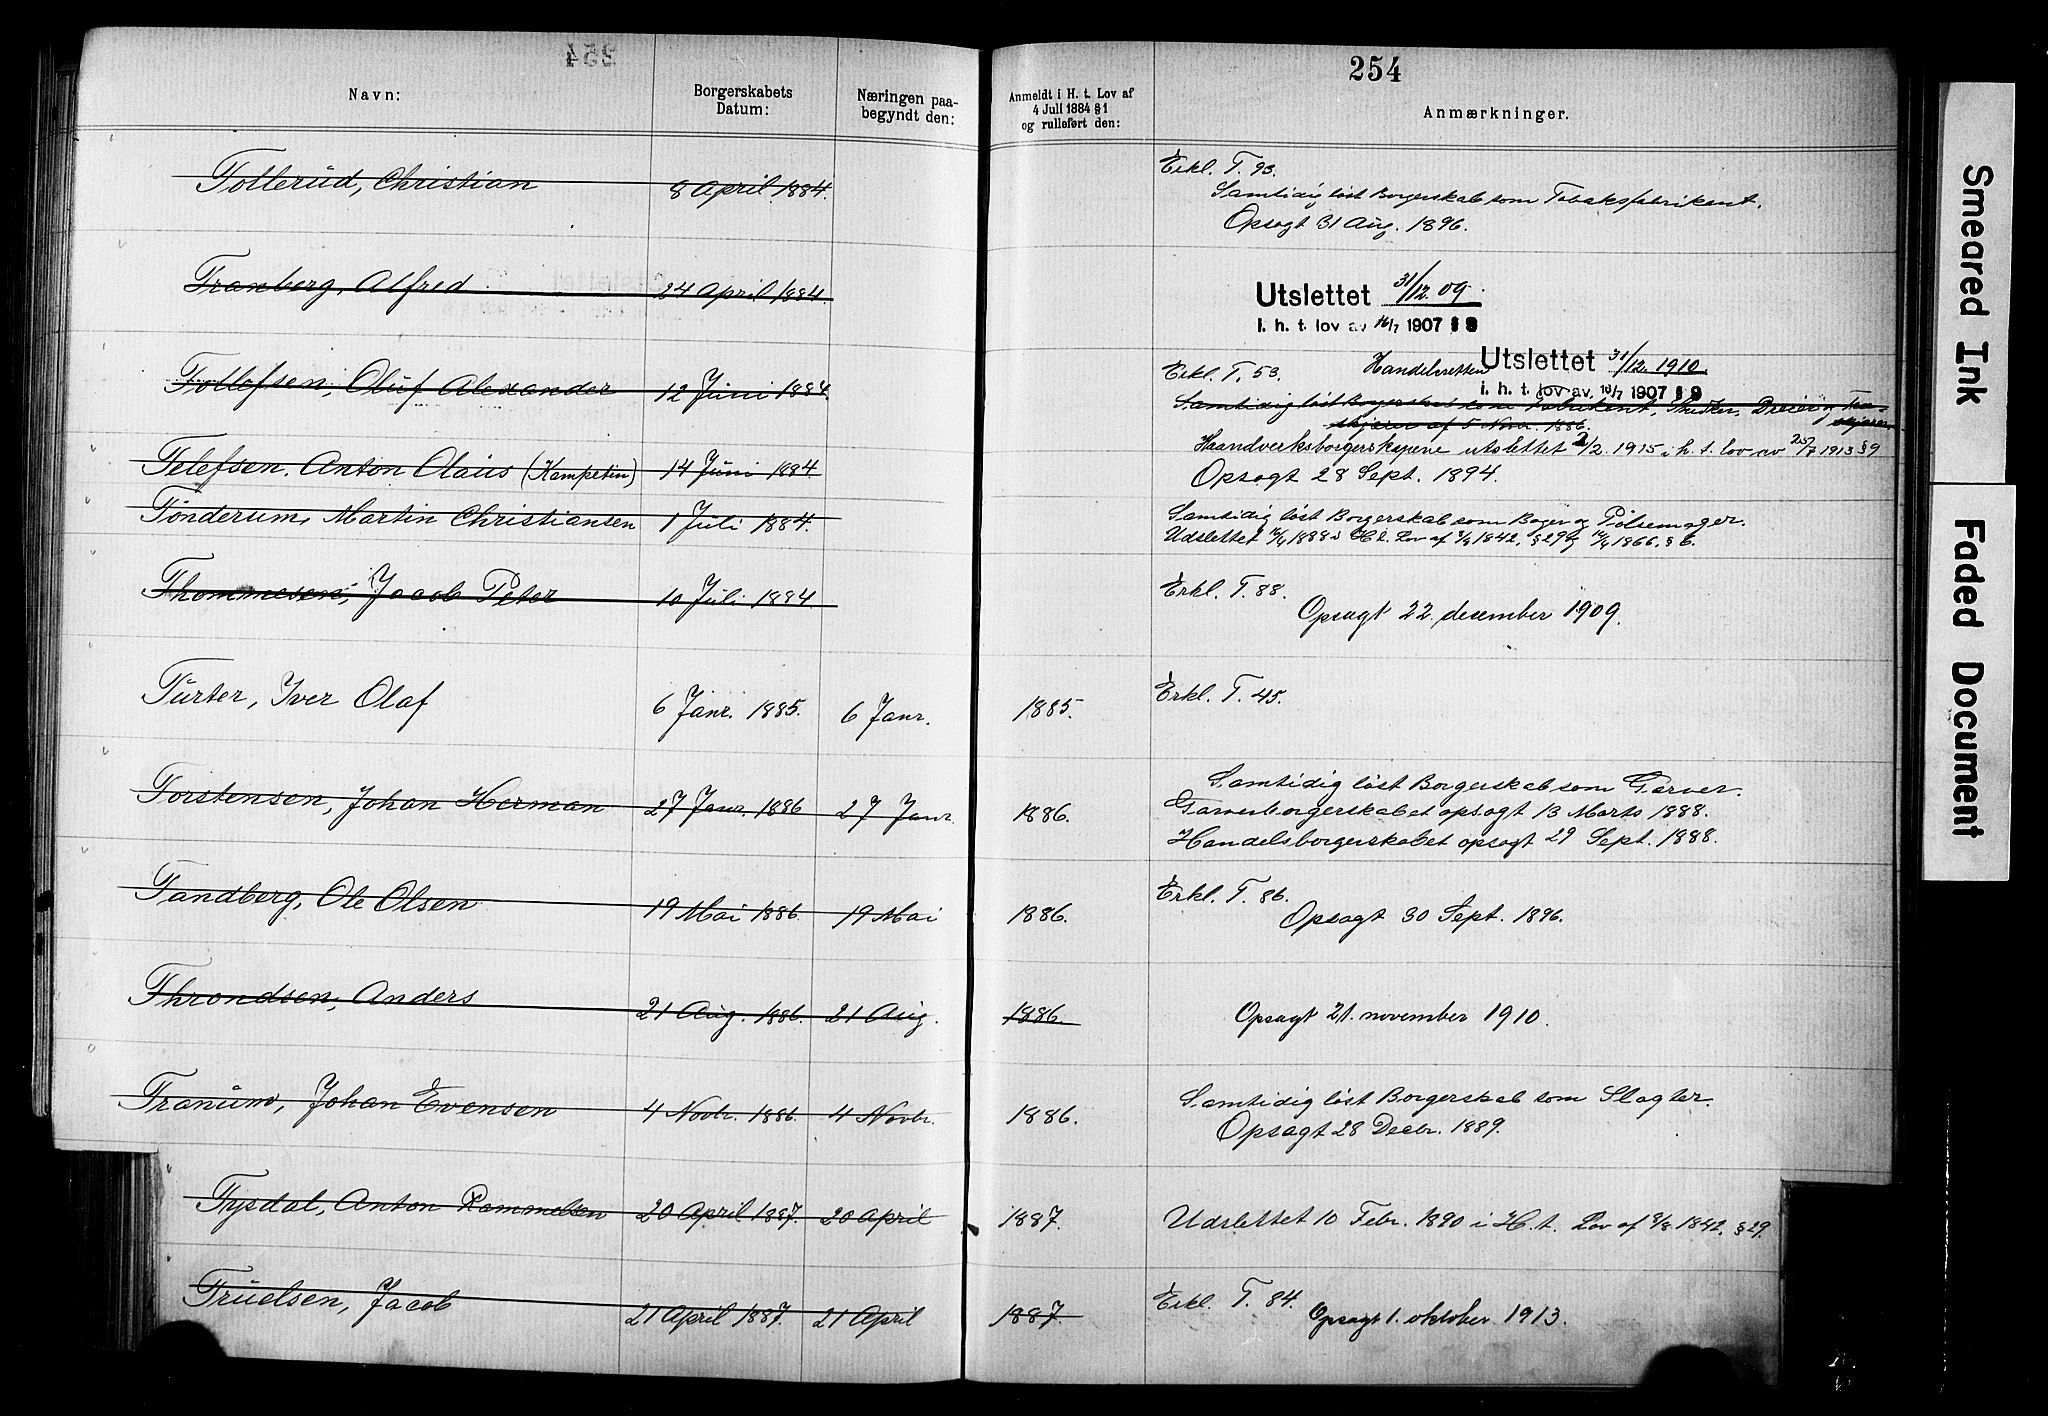 254
Navn:
Borgerskabets Datum:
Næringen paa-begyndt den:
Anmeldt i H. t. Lov af 4 Juli 1884 § 1 og rulleført den:
Anmærkninger.
Tollerud, Christian 8 April 1884. Erkl. T. 93.
Samtidig løst Borgerskab som Tobaksfabrikant.
Opsagt 31 Aug. 1896.
Tranberg, Alfred 24 April 1884. Utslettet 31/12 09.
i. h. t. lov av 16/7 1907 § 9
Tollefsen, Oluf Alexander 12 Juni 1884. Erkl. T. 53. Handelsretten Utslettet 31/12 1910.
i. h. t. lov av 16/7 1907 § 9
Samtidig løst Borgerskab som Fabrikant, Snedker, Dreier og Træ-
skjærer af 5 Novr. 1886.
Haandverksborgerskapene utslettet 2/2. 1915 i h. t. lov av 25/7 1913 § 9
Telefsen, Anton Olaus (Kampetin) 14 Juni 1884. Opsagt 28 Sept. 1894.
Tønderum, Martin Christiansen 1 Juli 1884. Samtidig løst Borgerskab som Bager og Pølsemager.
Udslettet 1888 i H. t. Lov af 8/8 1842, § 29 og 14/4 1866, § 6.
Thommesen, Jacob Peter 10 Juli 1884 Erkl. T. 88.
Opsagt 22. desember 1909.
Turter, Iver Olaf 6 Janr. 1885. 6 Janr. 1885. Erkl. T. 45.
Torstensen, Johan Herman 27 Janr. 1886 27 Janr. 1886. Samtidig løst Borgerskab som Garver.
Garverborgerskabet opsagt 13 Marts 1888.
Handelsborgerskabet opsagt 29 Sept. 1888.
Tandberg, Ole Olsen 19 Mai 1886. 19 Mai 1886. Erkl. T. 86.
Opsagt 30 Sept. 1896.
Throndsen, Anders 21 Aug. 1886. 21 Aug. 1886. Opsagt 21. november 1910.
Tranum, Johan Evensen 4 Novbr. 1886. 4 Novbr. 1886. Samtidig løst Borgerskab som Slagter.
Opsagt 28 Decbr. 1889.
Tysdal, Anton Rammelsen 20 April 1887. 20 April 1887. Udslettet 10 Febr. 1890 i H. t. Lov af 8/8 1842, § 29.
Truelsen, Jacob 21 April 1887. 21 April 1887. Erkl. T. 84.
Opsagt 1. oktober 1913.
Smeared Ink
Faded Document